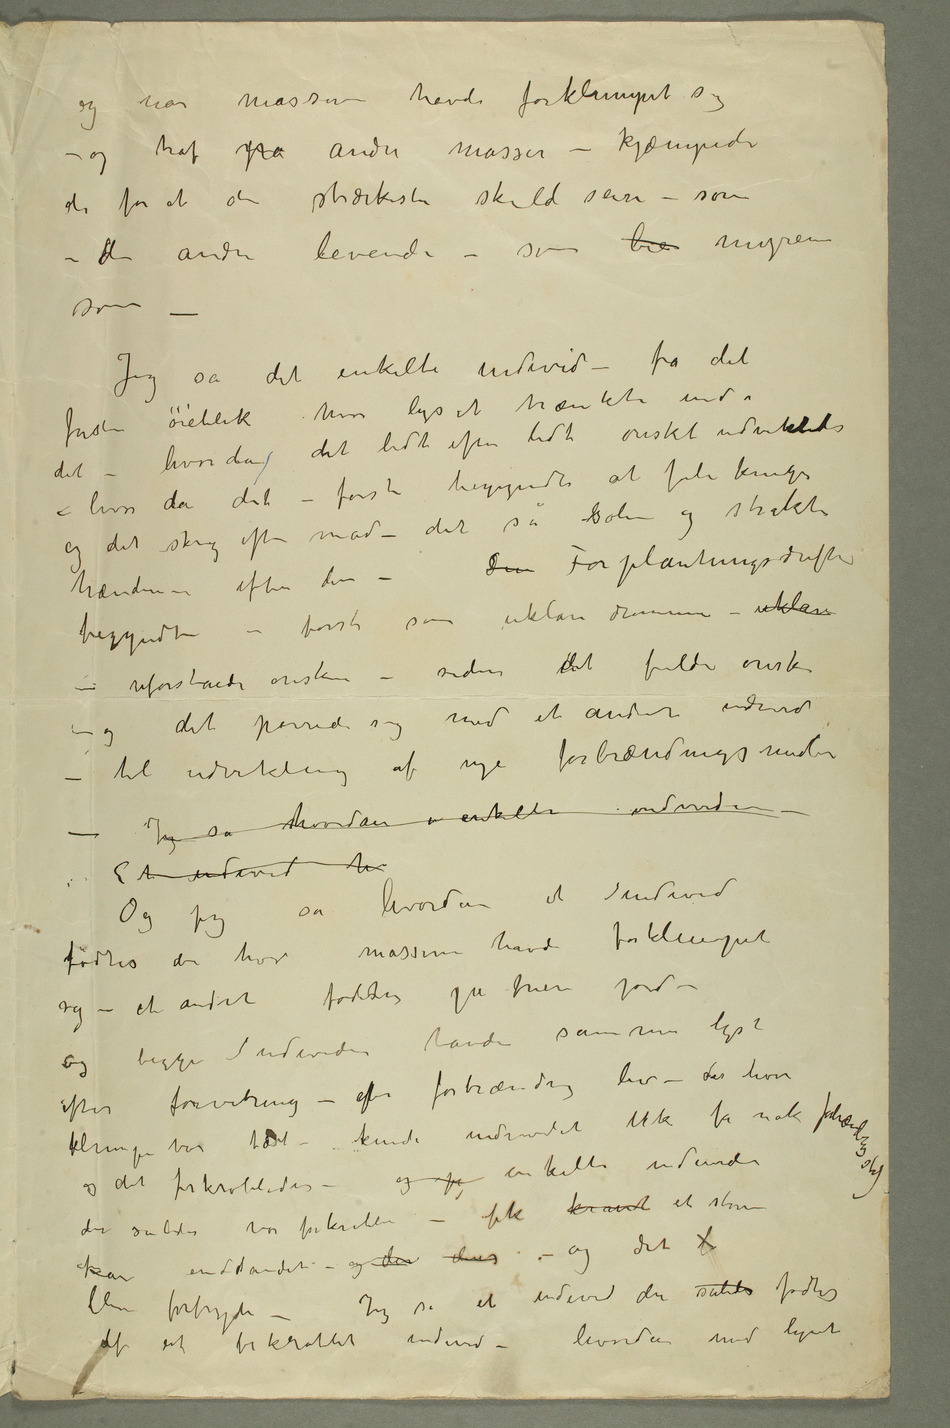 og når massen havde forklumpet sig
– og traf på andre masser – kjæmpede
de for at den stærkeste skuld seire – som
– de andre levende – som bie myrene
som —
Jeg så det enkelte individ – fra det
første öieblik hvor lyset trænkte ind i
det – hvordan det lidt efter lidt ønsket udvikledes
– hvor da det – først begyndte at føle knuge
og det skreg efter mad – det så solen og strakte
hændene efter den – Den Forplantningsdriften
begyndte – først som uklare drømme – uklare
— uforståede ønsker – siden det fulde ønske
– og det parrede sig med et andet individ
– til udvikling af nye forbrændingsmidler
— Jeg så hvordan enkelte individer –
Et individ h
Og jeg så hvordan et Individ
fødtes der hvor massen havde forklumpet
sig – et andet fødtes på friere jord –
og begge Individer havde samme lyst
efter forvitring – efter forbrænding liv – der hvor
klumpe var tæt – kunde individet ikke få nok forbrændingsstof
og det forkrøbledes – og jeg enkelte individer
der således var forkrøblet – fik kraved et større
kar endstandet – og der deres – og det f
blev forbryder – Jeg så et individ der således fødtes
af et forkrøblet individ – hvordan med lynet